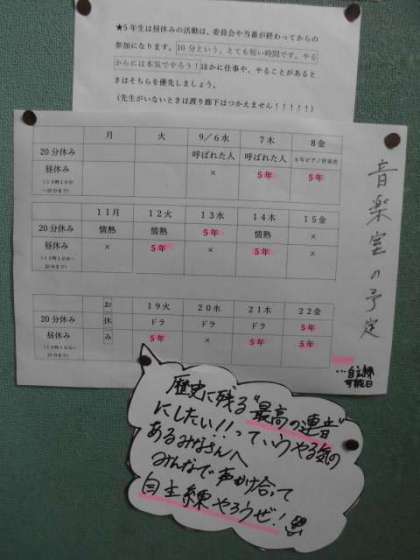 ★5年生は昼休みの活動は、委員会や当番が終わってからの
参加になります。10分という、とても短い時間です。やる
からには本気でやろう！ほかに仕事や、やることがあると
きはそちらを優先しましょう。
(先生がいないときは渡り廊下はつかえません！！！！！)
音楽室の予定
月 火 9／6水 7木 8金
20分休み 呼ばれた人 呼ばれた人
昼休み × 5年 5年
11月 12火 13水 14木 15金
20分休み 情熱 情熱 5年 情熱 ×
昼休み × 5年 × 5年 ×
お休み 19火 20水 21木 22金
20分休み ドラ ドラ ドラ 5年
昼休み 5年 × 5年 5年
…自主練
可能日
歴史に残る"最高の連音"
にしたい!!っていうやる気の
あるみなさんへ
みんなで声かけ合って
自主練やろうぜ!